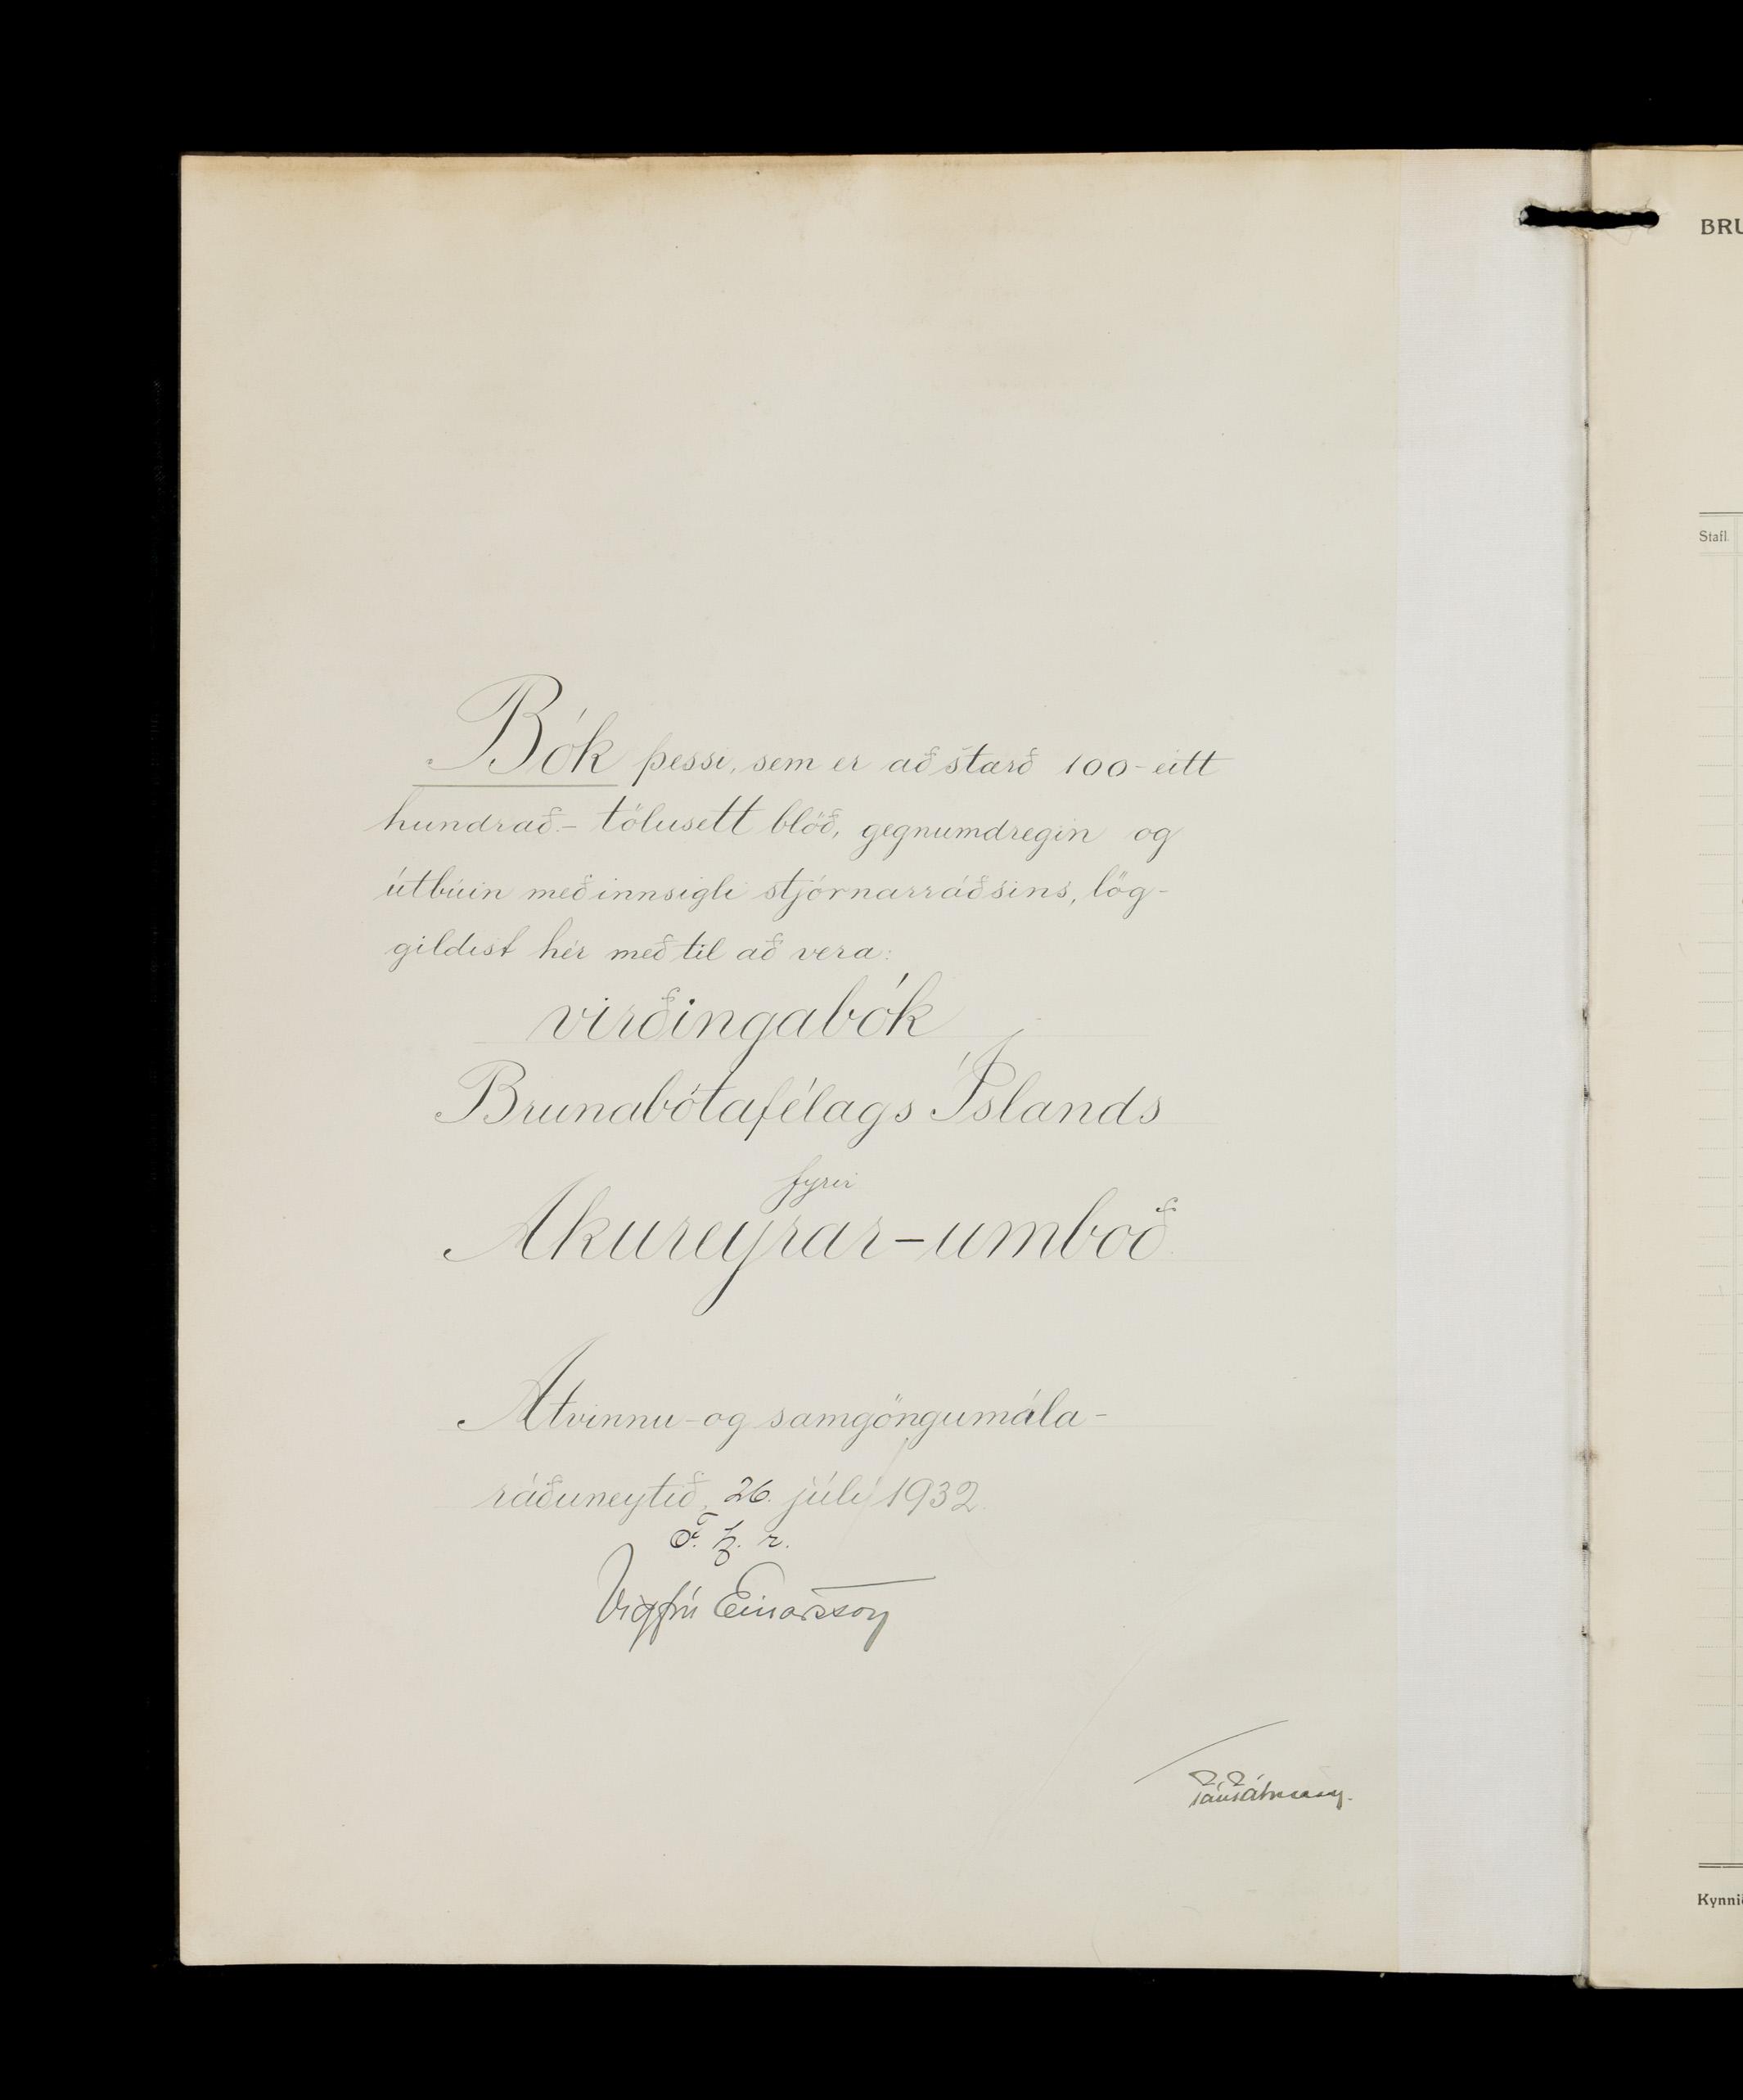 Bók þessi, sem er að stærð 100 - eitt
hundrað. - tölusett blöð, gegnumdregin og
útbúin með innsigli stjórnarráðsins, lög-
gildist hér með til að vera:
virðingabók
Brunabótafélags Íslands
fyrir
Akureyrar - umboð.
Atvinnu - og samgöngumála -
ráðuneytið, 26. júlí 1932.
F. h. r.
Vigfús Einarsson
BRU
Stafl.